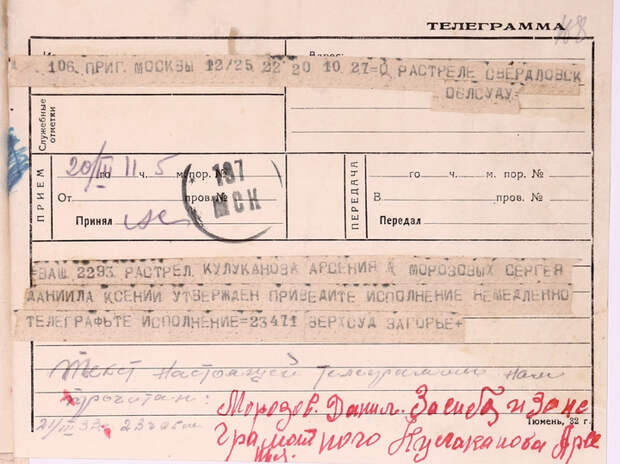 ТЕЛЕГРАММА
106 ПРИГ МОСКВЫ 12/25 22 20 10 27=О РАСТРЕЛЕ СВЕРДЛОВСК
ОБЛСУДУ=
Служебные отметки
ПРИЕМ
20/III го 11 ч. 5 м. пор. №
От пров. №
Принял
197
МСК
ПЕРЕДАЧА
го ч. м. пор. №
В пров. №
Передал
=ВАШ 2293 РАСТРЕЛ КУЛУКАНОВА АРСЕНИЯ МОРОЗОВЫХ СЕРГЕЯ
ДАНИИЛА КСЕНИИ УТВЕРЖДЕН ПРИВЕДИТЕ ИСПОЛНЕНИЕ НЕМЕДЛЕННО
ТЕЛЕГРАФЬТЕ ИСПОЛНЕНИЕ=23471 ВЕРХСУД ЗАГОРЬЕ+
Текст настоящей телеграммы нам
прочитан:
Морозов. Данил. За себя и за не
Тюмень, 32 г.
грамотного Кулаканова Арсе